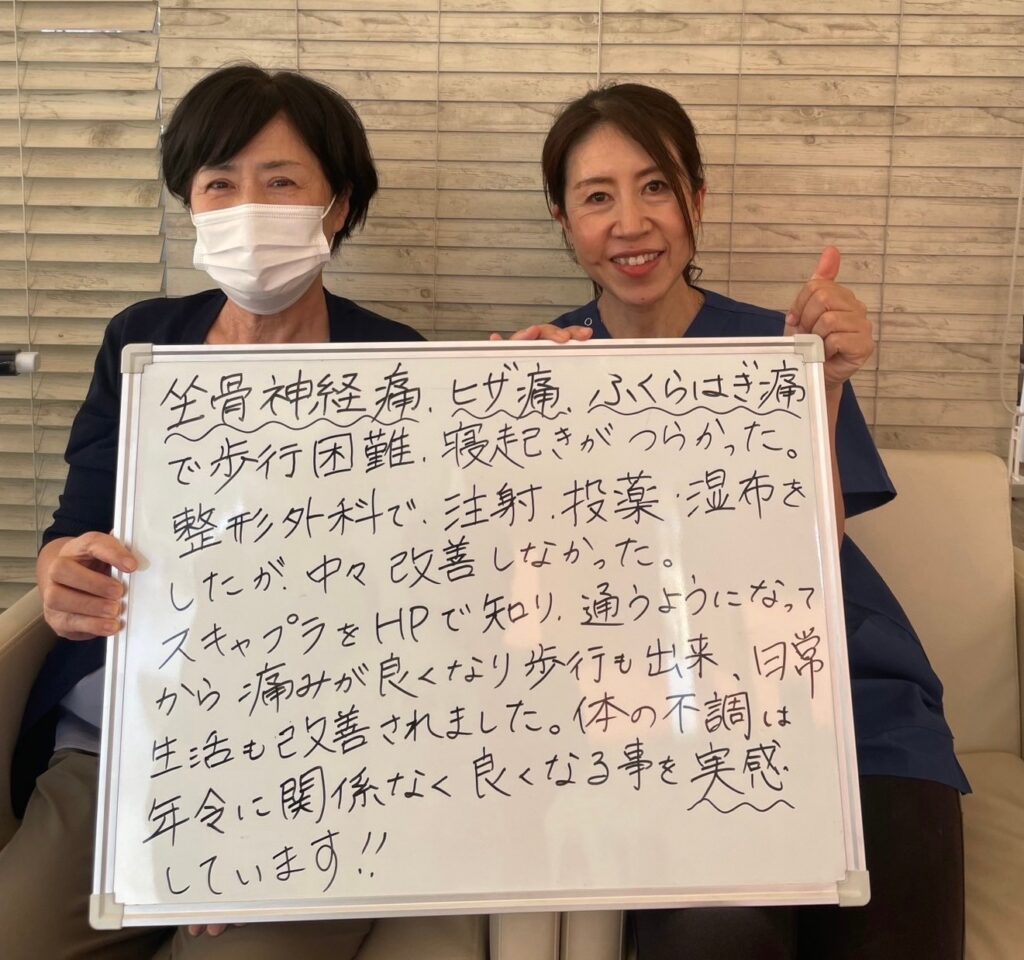 坐骨神経痛、ヒザ痛、ふくらはぎ痛
で歩行困難、寝起きがつらかった。
整形外科で、注射、投薬、湿布を
したが、中々改善しなかった。
スキャプラをHPで知り、通うようになって
から痛みが良くなり歩行も出来、日常
生活も改善されました。体の不調は
年令に関係なく良くなる事を実感
しています!!